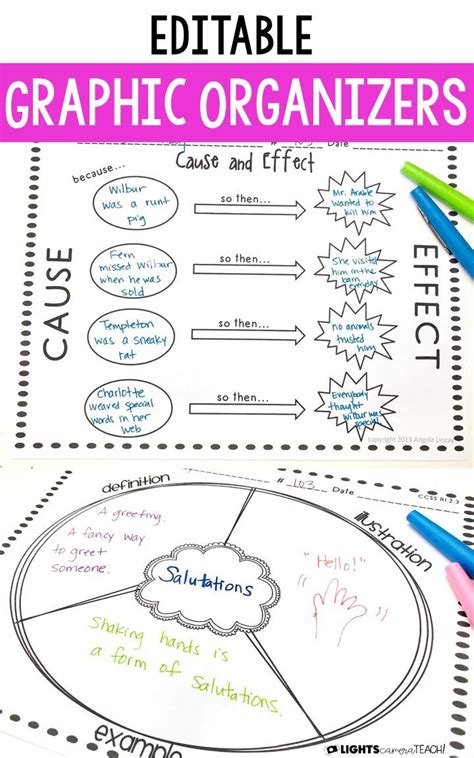 EDITABLE
GRAPHIC ORGANIZERS
# 103 Date
Cause and Effect
because...
Wilbur
was a runt
pig
so then...
Mr. Arable
wanted to
kill him
CAUSE
EFFECT
Fern
missed Wilbur
when he was
sold
so then...
She visited
him in the
barn
everyday
Templeton
was a sneaky
rat
so then...
no animals
trusted
him
Charlotte
weaved special
words in her
web
so then...
Everybody
thought
Wilbur was
special
copyright 2013 Angela Linzay
# 103 Date
CCSS RI 2.3
definition
illustration
A greeting.
A fancy way
to greet
someone.
Salutations
"Hello!"
Shaking hands is
a form of Salutations.
example
LIGHTS camera TEACH!